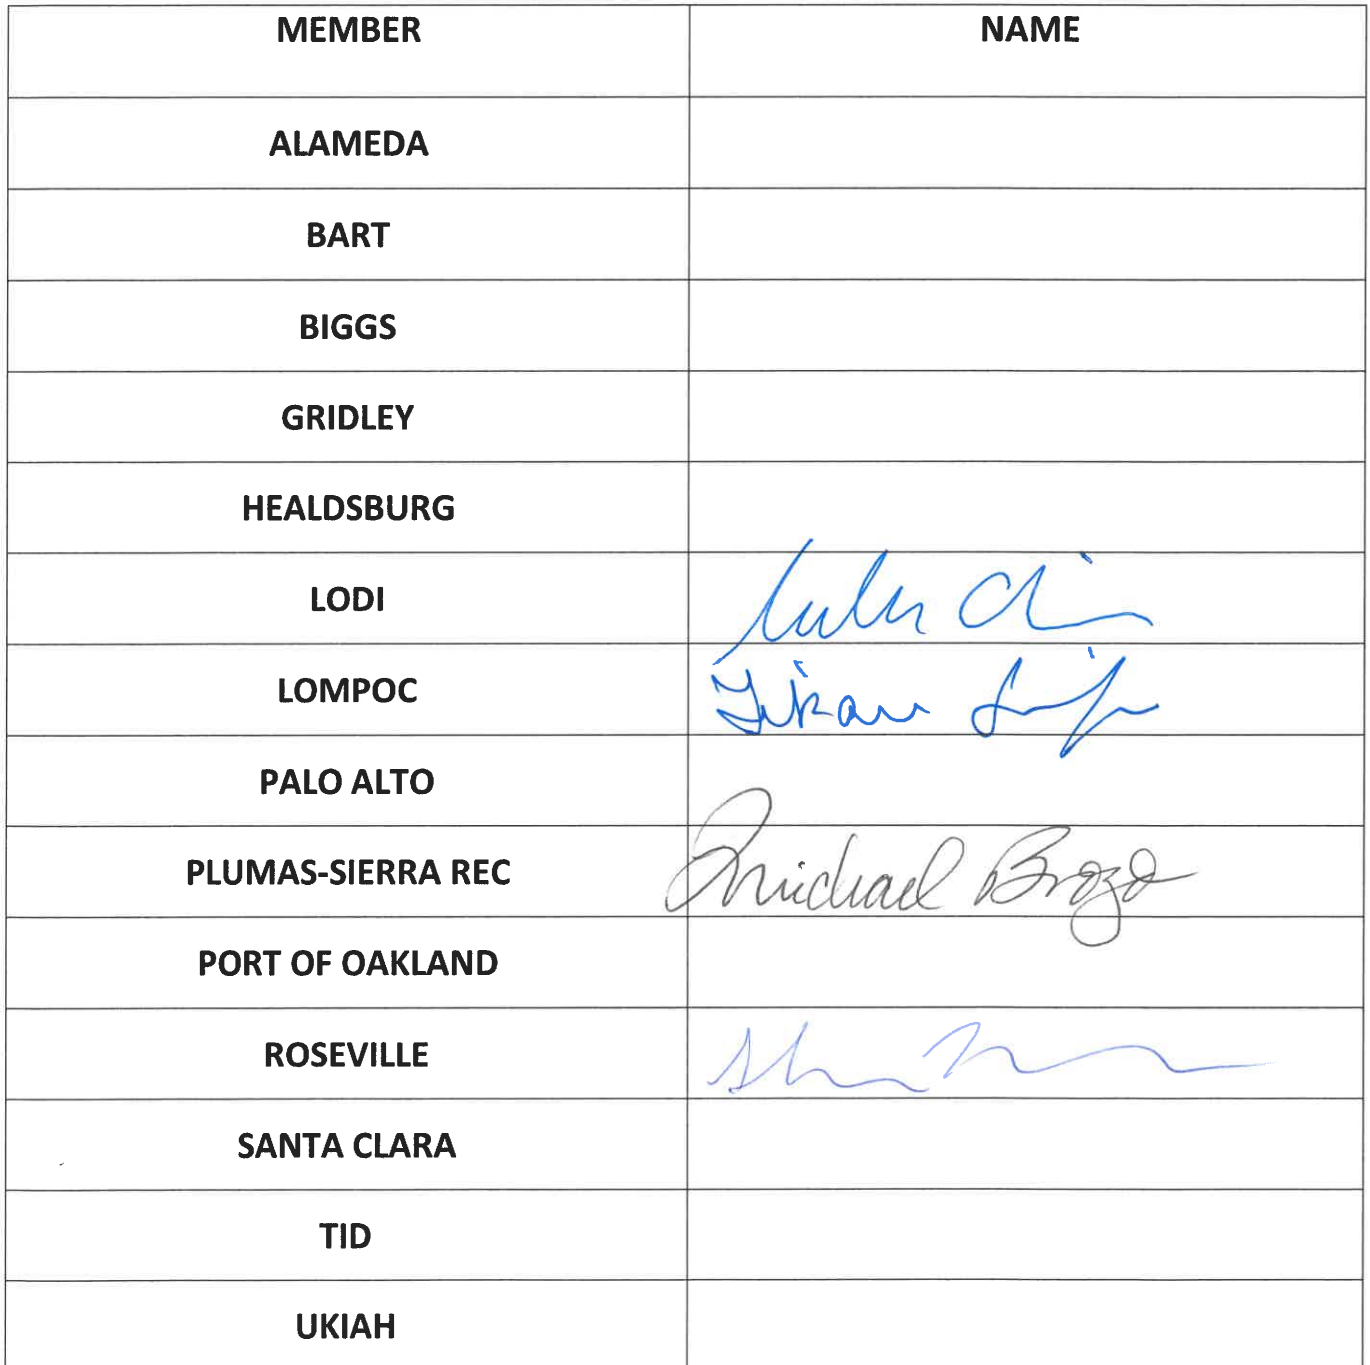 MEMBER NAME
ALAMEDA
BART
BIGGS
GRIDLEY
HEALDSBURG
LODI
LOMPOC
PALO ALTO
PLUMAS-SIERRA REC Michael Brozo
PORT OF OAKLAND
ROSEVILLE
SANTA CLARA
TID
UKIAH